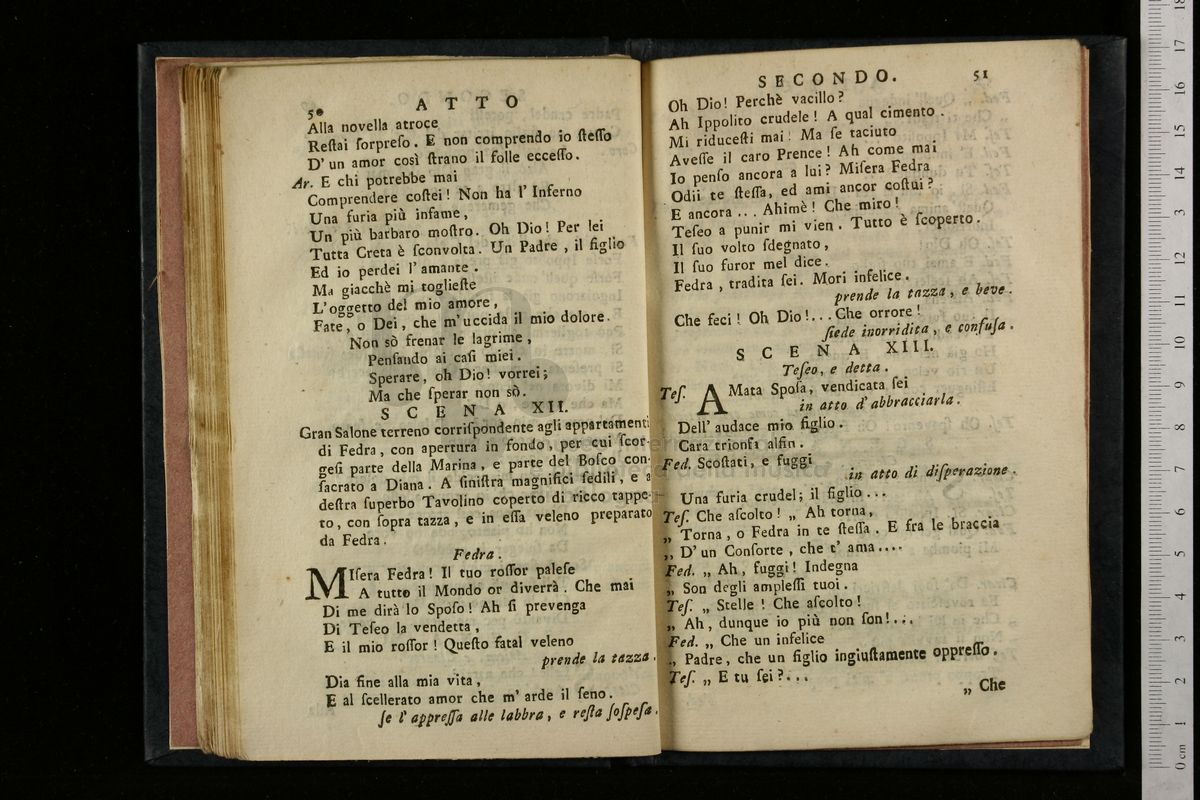 50
ATTO
Alla novella atroce
Reſtai ſorpreſo. E non comprendo io ſteſſo
D' un amor così ſtrano il folle ecceſſo.
Ar. E chi potrebbe mai
Comprendere coſtei! Non ha l' Inferno
Una furia più infame,
Un più barbaro moſtro. Oh Dio! Per lei
Tutta Creta è ſconvolta. Un Padre, il figlio
Ed io perdei l' amante.
Ma giacchè mi toglieſte
L' oggetto del mio amore,
Fate, o Dei, che m' uccida il mio dolore.
Non sò frenar le lagrime,
Penſando ai caſi miei.
Sperare, oh Dio! vorrei;
Ma che ſperar non sò.
SCENA XII.
Gran Salone terreno corriſpondente agli appartamenti
di Fedra, con apertura in fondo, per cui ſcor-
geſi parte della Marina, e parte del Boſco con-
ſacrato a Diana. A ſiniſtra magnifici ſedili, e a
deſtra ſuperbo Tavolino coperto di ricco tappe-
to, con ſopra tazza, e in eſſa veleno preparato
da Fedra.
Fedra.
MIſera Fedra! Il tuo roſſor paleſe
A tutto il Mondo or diverrà. Che mai
Di me dirà lo Spoſo! Ah ſi prevenga
Di Teſeo la vendetta,
E il mio roſſor! Queſto fatal veleno
prende la tazza.
Dia fine alla mia vita,
E al ſcellerato amor che m' arde il ſeno.
ſe l' appreſſa alle labbra, e reſta ſoſpeſa.
SECONDO.
51
Oh Dio! Perchè vacillo?
Ah Ippolito crudele! A qual cimento
Mi riduceſti mai! Ma ſe taciuto
Aveſſe il caro Prence! Ah come mai
Io penſo ancora a lui? Miſera Fedra
Odii te ſteſſa, ed ami ancor coſtui?
E ancora ... Ahimè! Che miro!
Teſeo a punir mi vien. Tutto è ſcoperto.
Il ſuo volto ſdegnato,
Il ſuo furor mel dice.
Fedra, tradita ſei. Mori infelice.
prende la tazza, e beve.
Che feci! Oh Dio!... Che orrore!
ſiede inorridita, e confuſa.
SCENA XIII.
Teſeo, e detta.
Teſ. AMata Spoſa, vendicata ſei
in atto d' abbracciarla.
Dell' audace mio figlio.
Cara trionfa alfin.
Fed. Scoſtati, e fuggi
in atto di diſperazione.
Una furia crudel; il figlio ...
Teſ. Che aſcolto! „ Ah torna,
„ Torna, o Fedra in te ſteſſa. E fra le braccia
„ D' un Conſorte, che t' ama....
Fed. „ Ah, fuggi! Indegna
„ Son degli ampleſſi tuoi.
Teſ. „ Stelle! Che aſcolto!
„ Ah, dunque io più non ſon!...
Fed. „ Che un infelice
„ Padre, che un figlio ingiuſtamente oppreſſo.
Teſ. „ E tu ſei?...
„ Che
0 cm 1 2 3 4 5 6 7 8 9 10 11 12 13 14 15 16 17 18